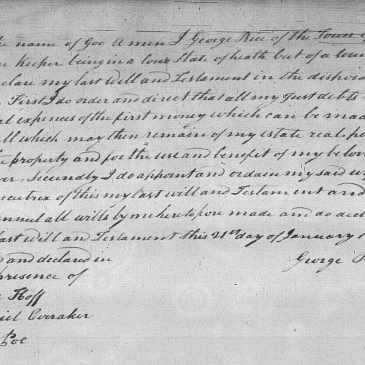 name of God Amen I George Rice of the Town of
keeper being in a low State of health but of a sound
declare my last will and Testament in the disposition
First I do order and direct that all my just debts
expences of the first money which can be made
all which may then remain of my estate real
property and for the use and benefit of my belov
Secondly I do appoint and ordain my said w
of this my last will and Testament and
annul all wills by me heretofore made and do decl
last Will and Testament this 21st day of January
and declared in George
presence of
Hoff
Overaker
Poe